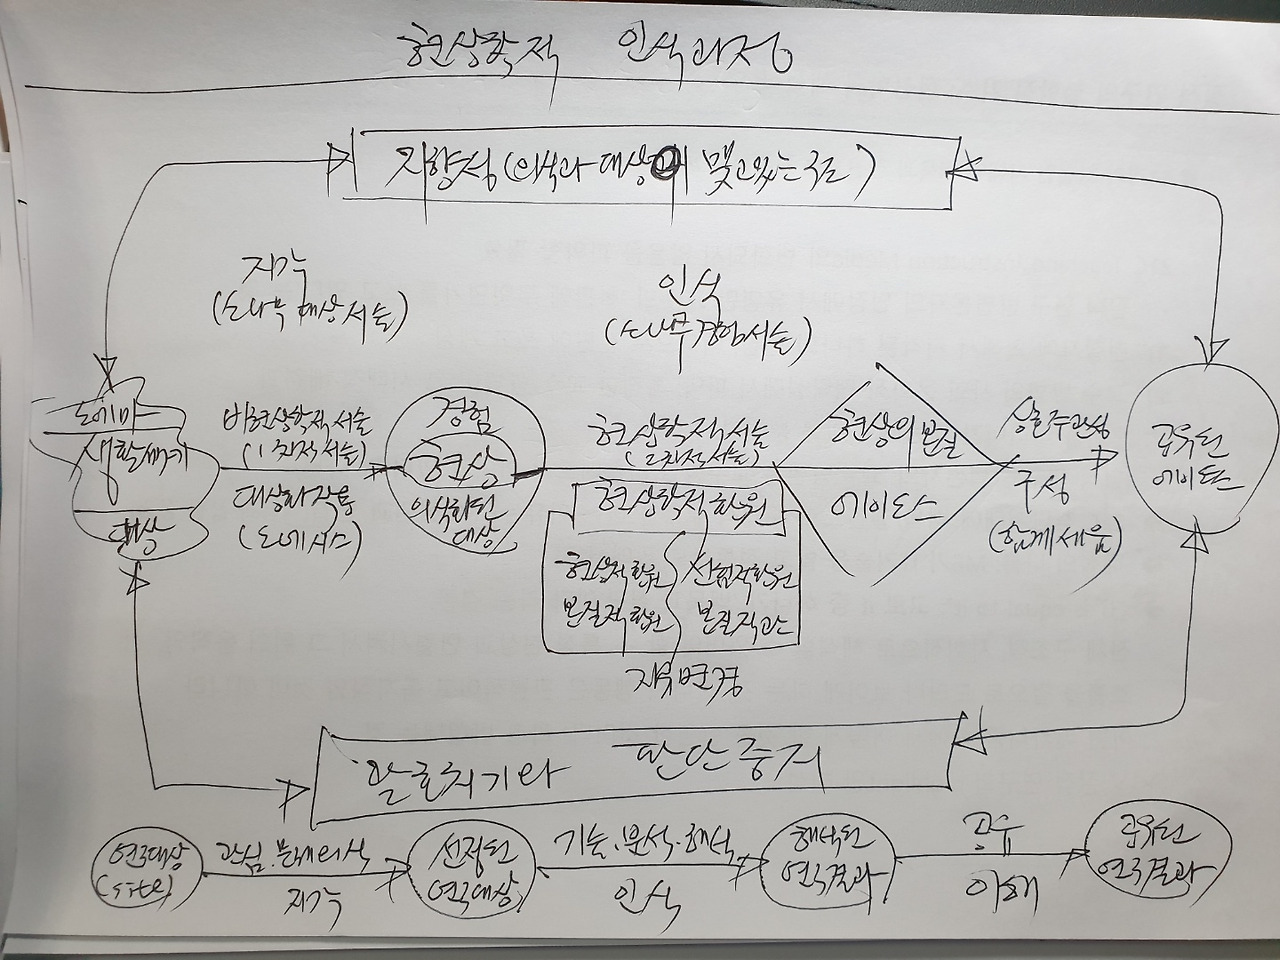 현상학적 인식과정
지향성(의식과 대상이 맺고있는 구조)
지각
(소나무 대상서술)
인식
(소나무경험서술)
노에마
생활세계
대상
비현상학적서술
(1차적서술)
대상화작용
(노에시스)
경험
현상
의식화된
대상
현상학적서술
(2차적서술)
현상학적환원
현상적환원
본질적환원
선험적환원
본질직관
자유변경
현상의 본질
에이도스
상호주관성
구성
(함께세움)
공유된
에이도스
괄호치기와 판단중지
연구대상
(site)
관심.문제의식
지각
선정된
연구대상
기술.분석.해석
인식
해석된
연구결과
공유
이해
공유된
연구결과